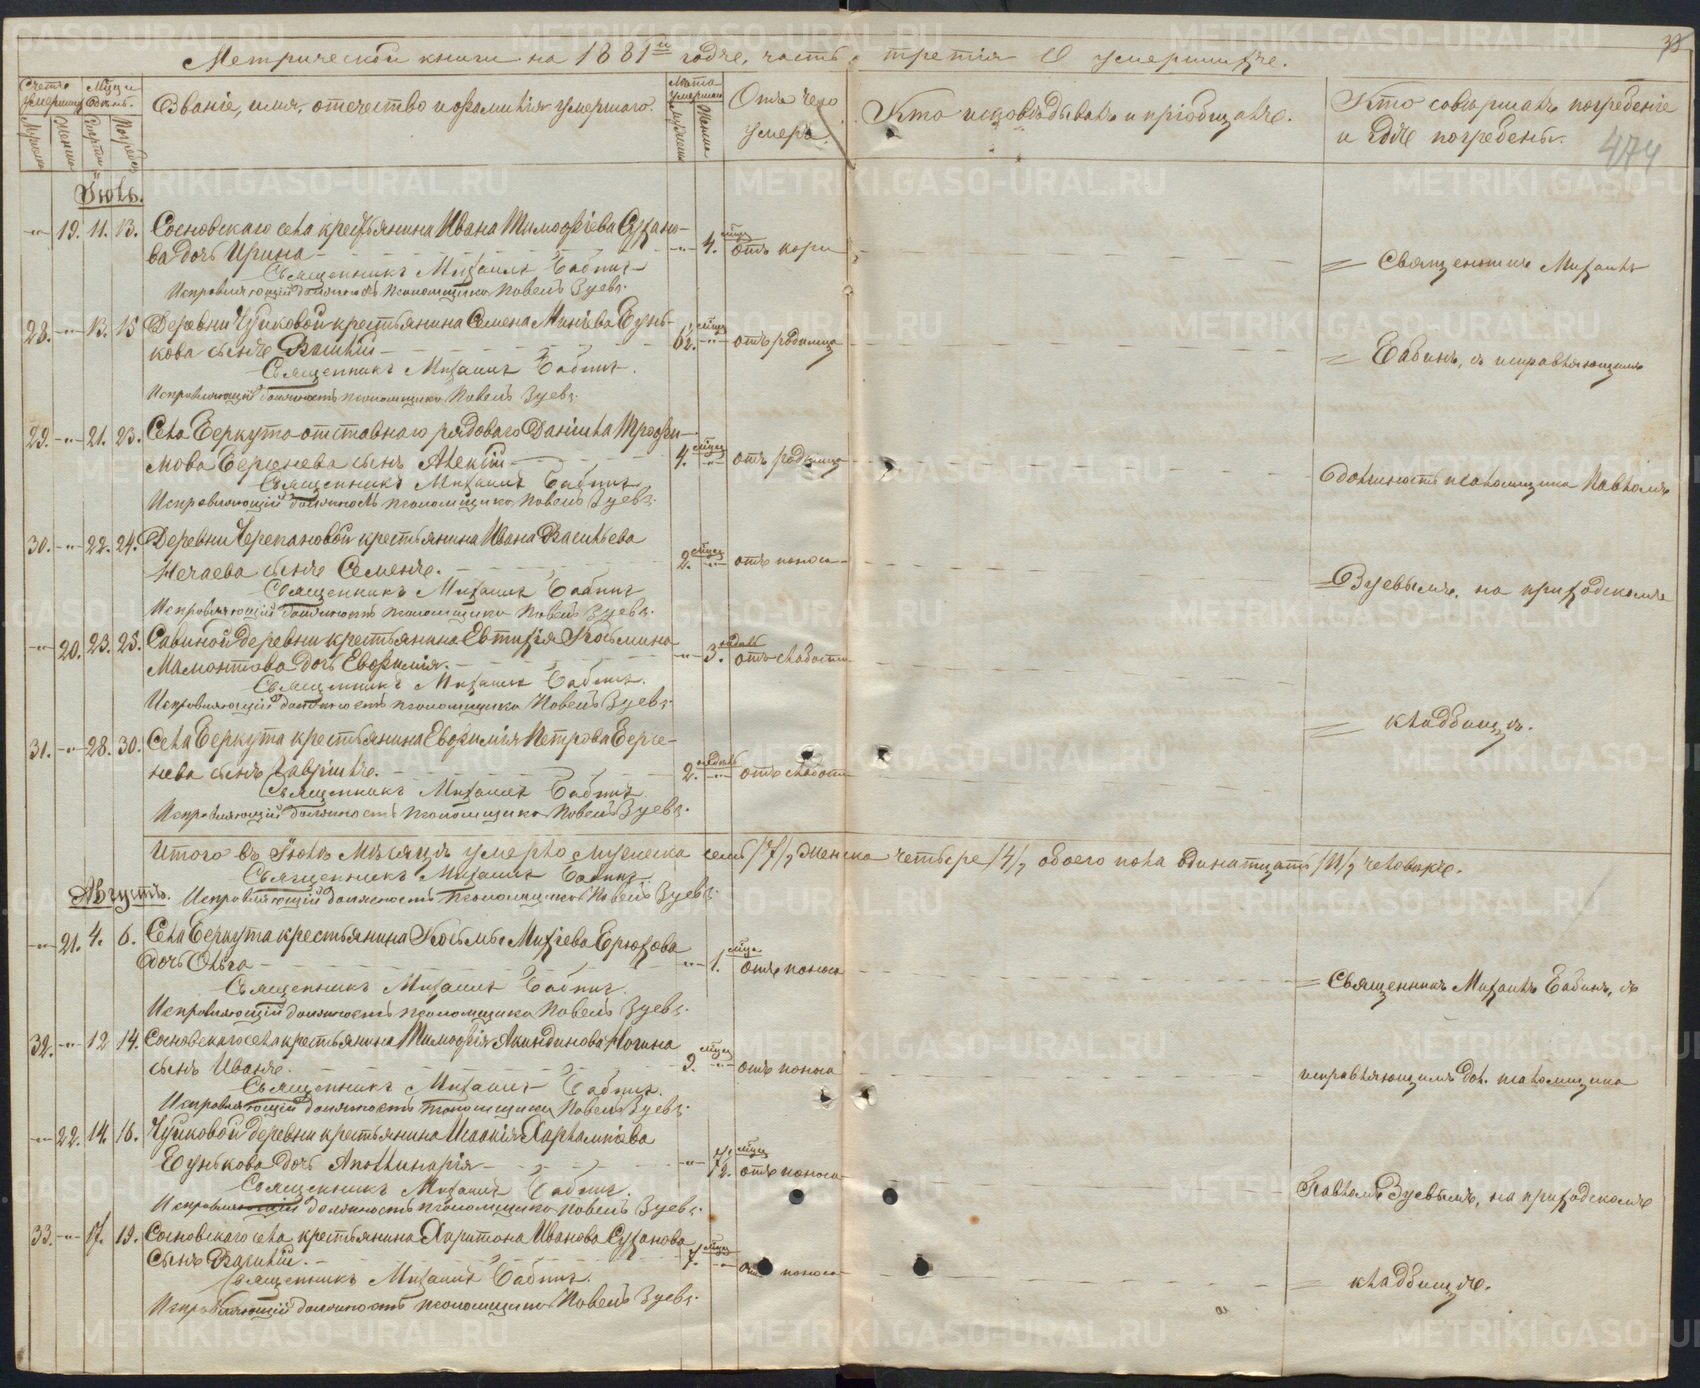 Метрической книги на 1881й годъ, часть третія О умершихъ.
38
474
Счетъ умершихъ
Мужеска
Женска
Мѣсяцъ и день
Смерти
Погребен.
Званіе, имя, отечество и фамилія умершаго.
Лѣта умершаго
Мужеска
Женска
Отъ чего умеръ.
Кто исповѣдывалъ и пріобщалъ.
Кто совершалъ погребеніе
и гдѣ погребены.
Іюль.
-"- 19. 11. 13. Сосновскаго села крестьянина Ивана Тимофѣева Сухано-
ва дочь Ирина -"- 4. мѣсяц отъ кори
Священникъ Михаилъ Бабинъ
Исправляющій должность псаломщика Павелъ Зуевъ.
28. -"- 13. 15 Деревни Чуйковой крестьянина Семена Минѣева Бунь-
кова сынъ Василій 6½. мѣсяц -"- отъ родимца
Священникъ Михаилъ Бабинъ.
Исправляющій должность псаломщика Павелъ Зуевъ.
29. -"- 21. 23. Села Беркута отставнаго рядоваго Даніила Трофи-
мова Бергенева сынъ Алексій 4. мѣсяц -"- отъ родимца
Священникъ Михаилъ Бабинъ
Исправляющій должность псаломщика Павелъ Зуевъ.
30. -"- 22. 24. Деревни Черепановой крестьянина Ивана Васильева
Нечаева сынъ Семенъ. 2. мѣсяц -"- отъ поноса
Священникъ Михаилъ Бабинъ
Исправляющій должность псаломщика Павелъ Зуевъ.
-"- 20. 23. 25. Савиной деревни крестьянина Евтихія Козьмина
Мамонтова дочь Евфимія. -"- 3. недѣль отъ слабости
Священникъ Михаилъ Бабинъ.
Исправляющій должность псаломщика Павелъ Зуевъ.
31. -"- 28. 30. Села Беркута крестьянина Евфимія Петрова Берге-
нева сынъ Гавріилъ. 2. недѣль -"- отъ слабости
Священникъ Михаилъ Бабинъ.
Исправляющій должность псаломщика Павелъ Зуевъ.
= Священникъ Михаилъ
= Бабинъ, съ исправляющимъ
должность псаломщика Павломъ
= Зуевымъ, на приходскомъ
= кладбищѣ.
Итого въ Іюлѣ мѣсяцѣ умерло мужеска семь /7/, женска четыре /4/, обоего пола одинатцать /11/, человѣкъ.
Священникъ Михаилъ Бабинъ.
Исправляющій должность псаломщика Павелъ Зуевъ.
Августъ.
-"- 21. 4. 6. Села Беркута крестьянина Козьмы Михѣева Ерюхова
дочь Ольга -"- 1. мѣсяц отъ поноса
Священникъ Михаилъ Бабинъ.
Исправляющій должность псаломщика Павелъ Зуевъ.
32. -"- 12 14. Сосновскаго села крестьянина Тимофія Акиндинова Ногина
сынъ Иванъ. 9. мѣсяц -"- отъ поноса
Священникъ Михаилъ Бабинъ.
Исправляющій должность псаломщика Павелъ Зуевъ.
-"- 22. 14. 16. Чуйковой деревни крестьянина Исаакія Харлампіева
Бунькова дочь Аполлинарія -"- 7½. мѣсяц отъ поноса
Священникъ Михаилъ Бабинъ.
Исправляющій должность псаломщика Павелъ Зуевъ.
33. -"- 17. 19. Сосновскаго села крестьянина Харитона Иванова Суханова
сынъ Василій. 7. мѣсяц -"- отъ поноса
Священникъ Михаилъ Бабинъ.
Исправляющій должность псаломщика Павелъ Зуевъ.
= Священникъ Михаилъ Бабинъ, съ
исправляющимъ дол. псаломщика
Павломъ Зуевымъ, на приходскомъ
= кладбищѣ.
METRIKI.GASO-URAL.RU